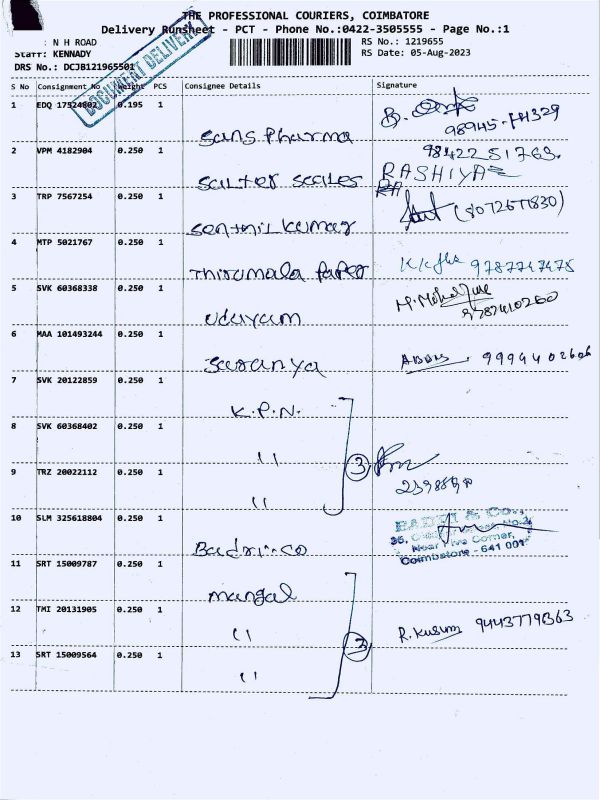 THE PROFESSIONAL COURIERS, COIMBATORE
Delivery Runsheet - PCT - Phone No.:0422-3505555 - Page No.:1
: N H ROAD RS No.: 1219655
Staff: KENNADY RS Date: 05-Aug-2023
DRS No.: DCJB121965501
DOCUMENT DELIVERY
S No Consignment No Weight PCS Consignee Details Signature
1 EDQ 17524802 0.195 1 Sans Pharma
2 VPM 4182904 0.250 1 Salter Scales 98422 51763. RASHIYA
3 TRP 7567254 0.250 1 Senthil kumar
4 MTP 5021767 0.250 1 Thirumala Paper 9787747475
5 SVK 60368338 0.250 1 Udayam
6 MAA 101493244 0.250 1 Saranya 9994402606
7 SVK 20122859 0.250 1 K.P.N.
8 SVK 60368402 0.250 1 " 3
9 TRZ 20022112 0.250 1 "
10 SLM 325618804 0.250 1 Badri-co
Near Five Corner,
Coimbatore - 641 001
11 SRT 15009787 0.250 1 mangal
12 TMI 20131905 0.250 1 " 3 R. Kusum
13 SRT 15009564 0.250 1 "